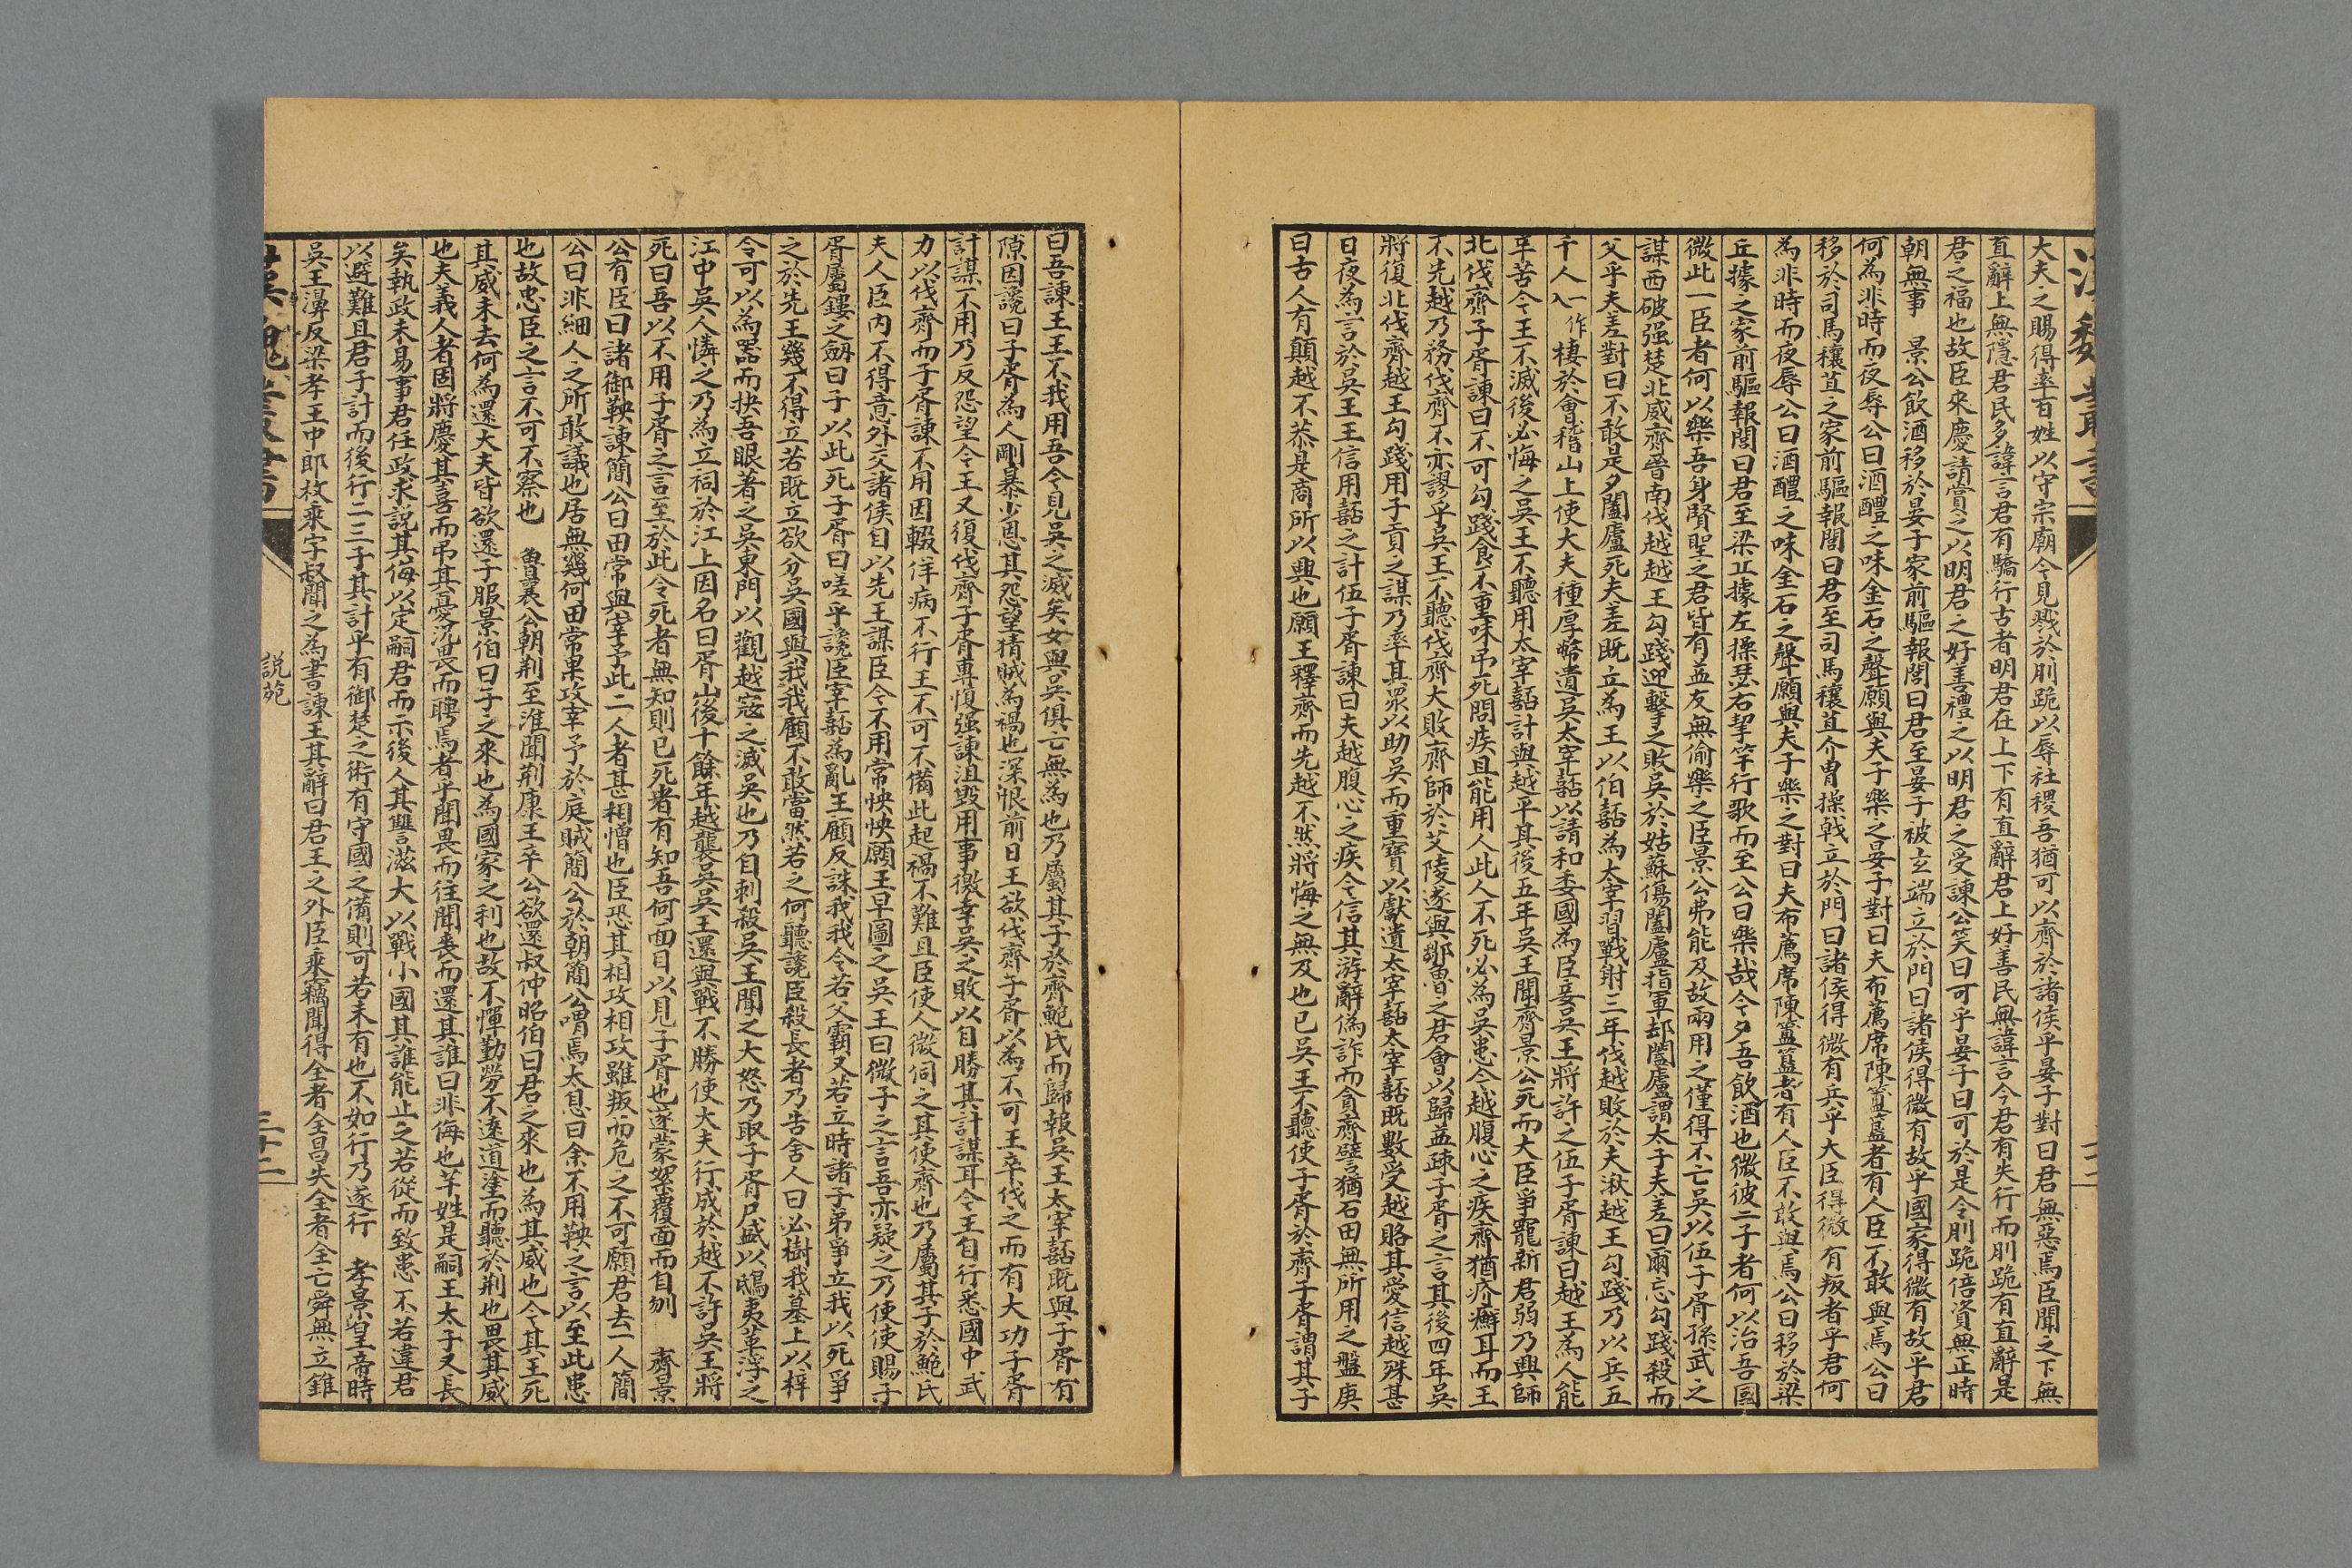 大夫之賜得率百姓以守宗廟今見戮於刖跪以辱社稷吾猶可以齊於諸侯乎晏子對曰君無惡焉臣聞之下無
直辭上無隱君民多諱言君有驕行古者明君在上下有直辭君上好善民無諱言今君有失行而刖跪有直辭是
君之福也故臣來慶請賞之以明君之好善禮之以明君之受諫公笑曰可乎晏子曰可於是令刖跪倍資無正時
朝無事　景公飲酒移於晏子家前驅報閭曰君至晏子被玄端立於門曰諸侯得微有故乎國家得微有故乎君
何為非時而夜辱公曰酒醴之味金石之聲願與夫子樂之晏子對曰夫布薦席陳簠簋者有人臣不敢與焉公曰
移於司馬穰苴之家前驅報閭曰君至司馬穰苴介冑操戟立於門曰諸侯得微有兵乎大臣得微有叛者乎君何
為非時而夜辱公曰酒醴之味金石之聲願與夫子樂之對曰夫布薦席陳簠簋者有人臣不敢與焉公曰移於梁
丘據之家前驅報閭曰君至梁丘據左操瑟右挈竽行歌而至公曰樂哉今夕吾飲酒也微彼二子者何以治吾國
微此一臣者何以樂吾身賢聖之君皆有益友無偷樂之臣景公弗能及故兩用之僅得不亡吳以伍子胥孫武之
謀西破强楚北威齊晉南伐越越王勾踐迎擊之敗吳於姑蘇傷闔廬指軍却闔廬謂太子夫差曰爾忘勾踐殺而
父乎夫差對曰不敢是夕闔廬死夫差既立為王以伯嚭為太宰習戰射三年伐越敗於夫湫越王勾踐乃以兵五
千人入一作棲於會稽山上使大夫種厚幣遺吳太宰嚭以請和委國為臣妾吳王將許之伍子胥諫曰越王為人能
辛苦今王不滅後必悔之吳王不聽用太宰嚭計與越平其後五年吳王聞齊景公死而大臣爭寵新君弱乃興師
北伐齊子胥諫曰不可勾踐食不重味弔死問疾且能用人此人不死必為吳患今越腹心之疾齊猶疥癬耳而王
不先越乃務伐齊不亦謬乎吳王不聽伐齊大敗齊師於艾陵遂與鄒魯之君會以歸益疎子胥之言其後四年吳
將復北伐齊越王勾踐用子貢之謀乃率其眾以助吳而重寶以獻遺太宰嚭太宰嚭既數受越賂其愛信越殊甚
日夜為言於吳王王信用嚭之計伍子胥諫曰夫越腹心之疾今信其游辭偽詐而貪齊譬猶石田無所用之盤庚
曰古人有顛越不恭是商所以興也願王釋齊而先越不然將悔之無及也已吳王不聽使子胥於齊子胥謂其子
曰吾諫王王不我用吾今見吳之滅矣女與吳俱亡無為也乃屬其子於齊鮑氏而歸報吳王太宰嚭既與子胥有
隙因讒曰子胥為人剛暴少恩其怨望猜賊為禍也深恨前日王欲伐齊子胥以為不可王卒伐之而有大功子胥
計謀不用乃反怨望今王又復伐齊子胥專愎强諫沮毀用事徼幸吳之敗以自勝其計謀耳今王自行悉國中武
力以伐齊而子胥諫不用因輟佯病不行王不可不備此起禍不難且臣使人微伺之其使齊也乃屬其子於鮑氏
夫人臣內不得意外交諸侯自以先王謀臣今不用常怏怏願王早圖之吳王曰微子之言吾亦疑之乃使使賜子
胥屬鏤之劒曰子以此死子胥曰嗟乎讒臣宰嚭為亂王顧反誅我我令若父霸又若立時諸子弟爭立我以死爭
之於先王幾不得立若既立欲分吳國與我我顧不敢當然若之何聽讒臣殺長者乃告舍人曰必樹我墓上以梓
令可以為器而抉吾眼著之吳東門以觀越寇之滅吳也乃自刺殺吳王聞之大怒乃取子胥尸盛以鴟夷革浮之
江中吳人憐之乃為立祠於江上因名曰胥山後十餘年越襲吳吳王還與戰不勝使大夫行成於越不許吳王將
死曰吾以不用子胥之言至於此令死者無知則已死者有知吾何面目以見子胥也遂蒙絮覆面而自刎　齊景
公有臣曰諸御鞅諫簡公曰田常與宰予此二人者甚相憎也臣恐其相攻相攻雖叛而危之不可願君去一人簡
公曰非細人之所敢議也居無幾何田常果攻宰予於庭賊簡公於朝簡公喟焉太息曰余不用鞅之言以至此患
也故忠臣之言不可不察也　魯襄公朝荆至淮聞荆康王卒公欲還叔仲昭伯曰君之來也為其威也今其王死
其威未去何為還大夫皆欲還子服景伯曰子之來也為國家之利也故不憚勤勞不遠道塗而聽於荆也畏其威
也夫義人者固將慶其喜而弔其憂況畏而聘焉者乎聞畏而往聞喪而還其誰曰非侮也芊姓是嗣王太子又長
矣執政未易事君任政求說其侮以定嗣君而示後人其讐滋大以戰小國其誰能止之若從而致患不若違君
以避難且君子計而後行二三子其計乎有御楚之術有守國之備則可若未有也不如行乃遂行　孝景皇帝時
吳王濞反梁孝王中郎枚乘字叔聞之為書諫王其辭曰君王之外臣乘竊聞得全者全昌失全者全亡舜無立錐
漢魏叢書
説苑
三十二